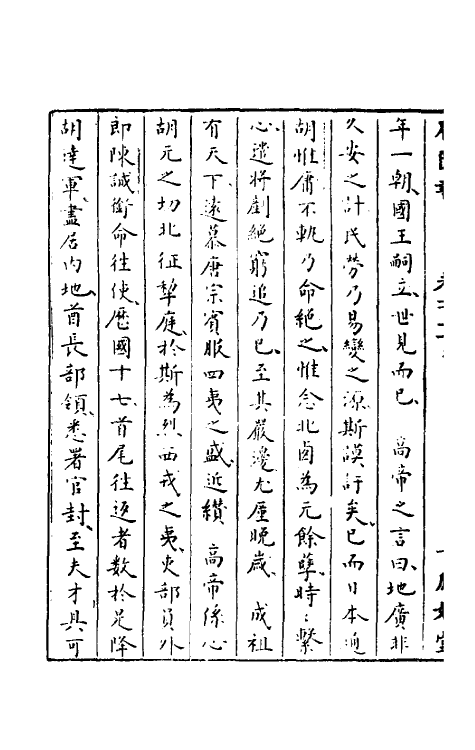 年一朝國王嗣立世見而已　高帝之言曰地廣非
久安之計民勞乃易變之源斯謨訏矣已而日本通
胡惟庸不軌乃命絕之惟念北鹵為元餘孽時〻繫
心遣將劃絕窮追乃已至其嚴邊尤廑晚歲　成祖
有天下遠慕唐宗賓服四夷之盛近纘　高帝係心
胡元之切北征犂庭於斯為烈西戎之夷吏部員外
即陳誠銜命往使歷國十七首尾往返者數於是降
胡達軍盡居內地酋長部領悉署官封至夫才具可